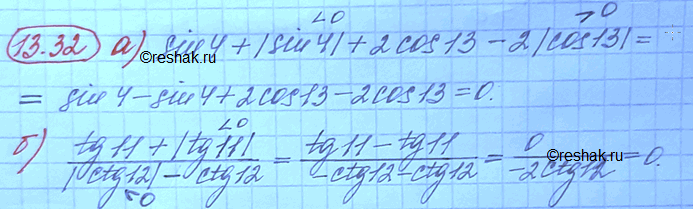 <0 >0
13.32 а) sin4 + |sin4| + 2cos13 - 2|cos13| =
= sin4 - sin4 + 2cos13 - 2cos13 = 0.
<0
б) (tg11 + |tg11|)/(|ctg12| - ctg12) = (tg11 - tg11)/(-ctg12 - ctg12) = 0/(-2ctg12) = 0.
<0